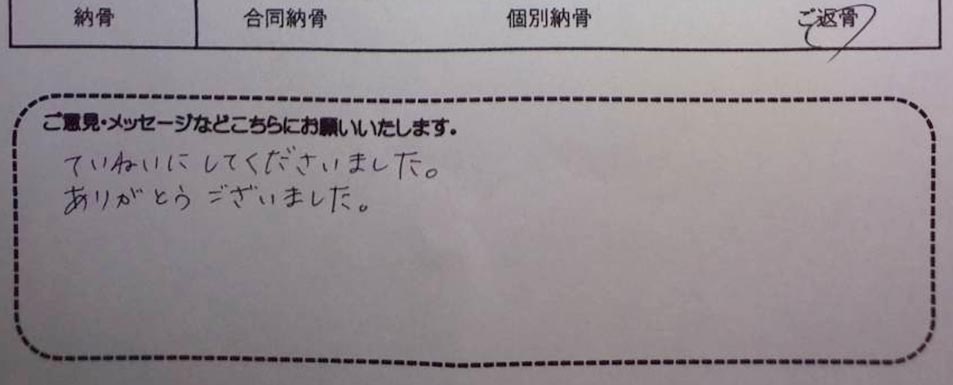 納骨 合同納骨 個別納骨 ご返骨
ご意見・メッセージなどこちらにお願いいたします。
ていねいにしてくださいました。
ありがとうございました。